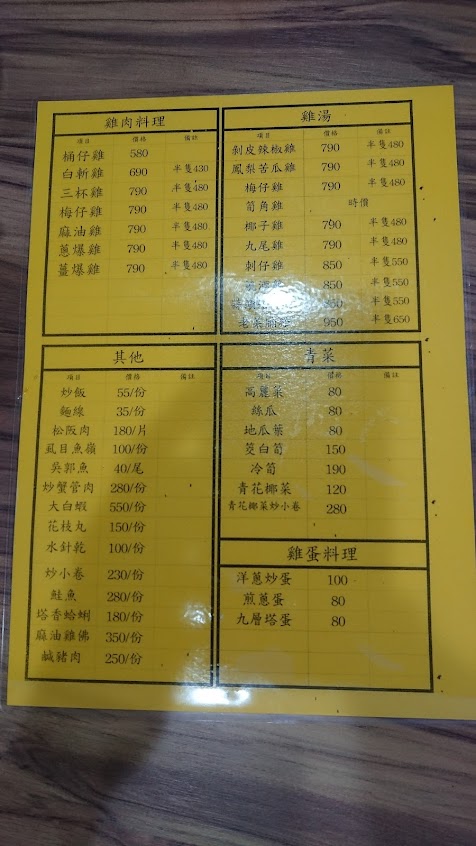 雞肉料理
項目 價格 備註
桶仔雞 580
白斬雞 690 半隻430
三杯雞 790 半隻480
梅仔雞 790 半隻480
麻油雞 790 半隻480
蔥爆雞 790 半隻480
薑爆雞 790 半隻480
雞湯
項目 價格 備註
剝皮辣椒雞 790 半隻480
鳳梨苦瓜雞 790 半隻480
梅仔雞 790 半隻480
筍角雞 時價
椰子雞 790 半隻480
九尾雞 790 半隻480
刺仔雞 850 半隻550
850 半隻550
半隻550
950 半隻650
其他
項目 價格 備註
炒飯 55/份
麵線 35/份
松阪肉 180/片
虱目魚嶺 100/份
吳郭魚 40/尾
炒蟹管肉 280/份
大白蝦 550/份
花枝丸 150/份
水針乾 100/份
炒小卷 230/份
鮭魚 280/份
塔香蛤蜊 180/份
麻油雞佛 350/份
鹹豬肉 250/份
青菜
項目 價格 備註
高麗菜 80
絲瓜 80
地瓜葉 80
筊白筍 150
冷筍 190
青花椰菜 120
青花椰菜炒小卷 280
雞蛋料理
洋蔥炒蛋 100
煎蔥蛋 80
九層塔蛋 80